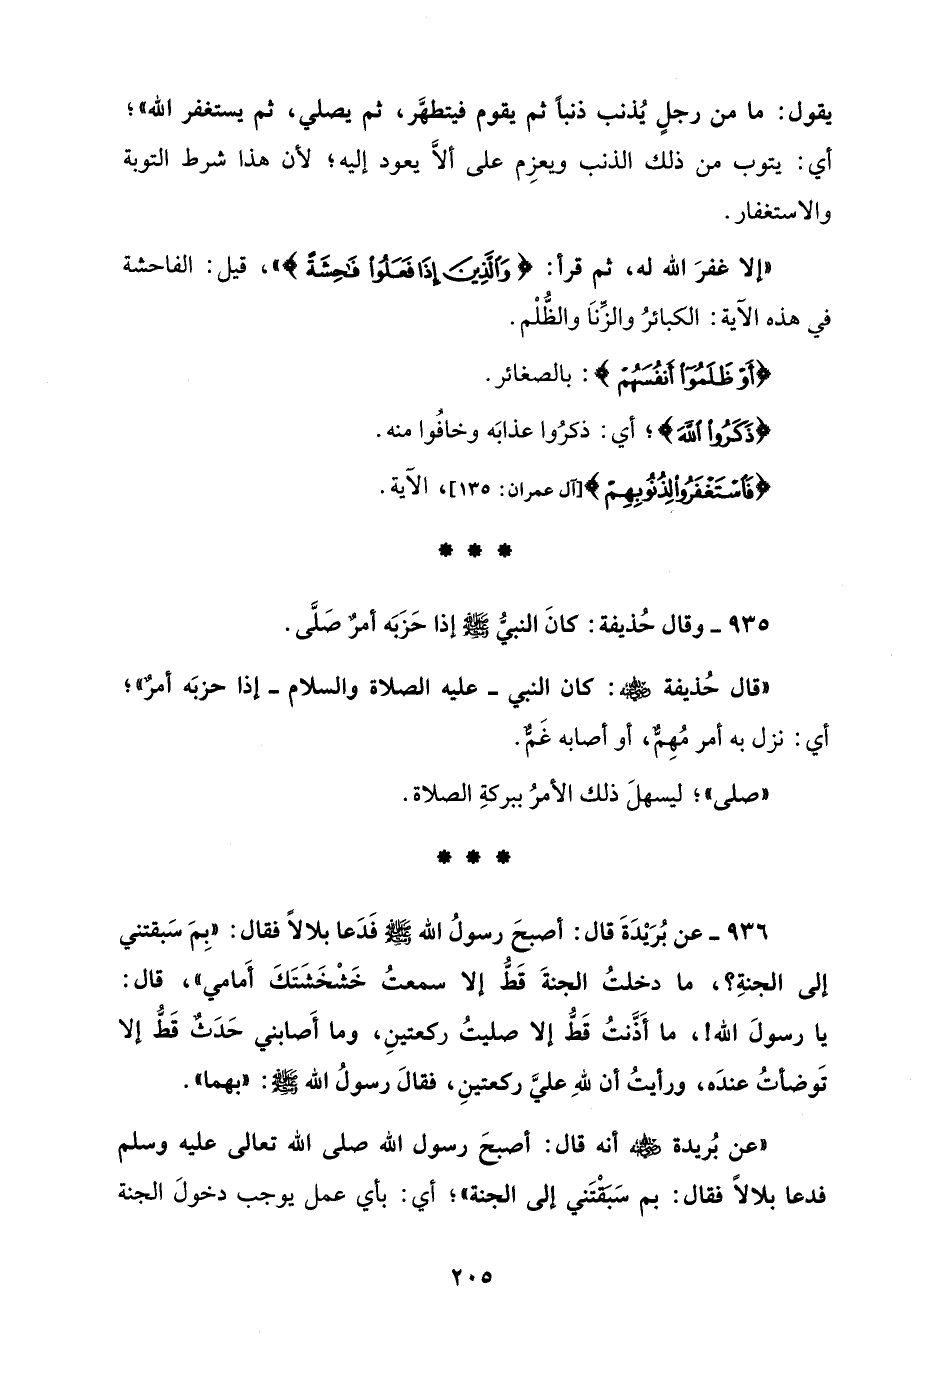 يقول: ما من رجلٍ يُذنب ذنباً ثم يقوم فيتطهَّر، ثم يصلي، ثم يستغفر الله»؛
أي: يتوب من ذلك الذنب ويعزِم على ألاَّ يعود إليه؛ لأن هذا شرط التوبة
والاستغفار.
«إلا غفرَ الله له، ثم قرأ: ﴿وَٱلَّذِينَ إِذَا فَعَلُوا۟ فَـٰحِشَةً﴾»، قيل: الفاحشة
في هذه الآية: الكبائرُ والزِّنَا والظُّلْم.
﴿أَوْ ظَلَمُوٓا۟ أَنفُسَهُمْ﴾: بالصغائر.
﴿ذَكَرُوا۟ ٱللَّهَ﴾؛ أي: ذكرُوا عذابَه وخافُوا منه.
﴿فَٱسْتَغْفَرُوا۟ لِذُنُوبِهِمْ﴾[آل عمران: ١٣٥]، الآية.
* * *
٩٣٥ ـ وقال حُذيفة: كانَ النبيُّ ﷺ إذا حَزَبَه أمرٌ صَلَّى.
«قال حُذيفة رضي الله عنه: كان النبي ـ عليه الصلاة والسلام ـ إذا حزبَه أمرٌ»؛
أي: نزل به أمر مُهِمٌّ، أو أصابه غَمٌّ.
«صلى»؛ ليسهلَ ذلك الأمرُ ببركةِ الصلاة.
* * *
٩٣٦ ـ عن بُرَيْدَةَ قال: أصبحَ رسولُ الله ﷺ فَدَعا بلالاً فقال: «بِمَ سَبقتني
إلى الجنةِ؟، ما دخلتُ الجنةَ قَطُّ إلا سمعتُ خَشْخَشَتَكَ أَمامي»، قال:
يا رسولَ الله!، ما أَذَّنتُ قَطُّ إلا صليتُ ركعتينِ، وما أَصابني حَدَثٌ قَطُّ إلا
تَوضأتُ عندَه، ورأيتُ أن للهِ عليَّ ركعتينِ، فقالَ رسولُ الله ﷺ: «بهما».
«عن بُريدة رضي الله عنه أنه قال: أصبحَ رسول الله صلى الله تعالى عليه وسلم
فدعا بلالاً فقال: بم سَبَقْتَني إلى الجنة»؛ أي: بأي عمل يوجب دخولَ الجنة
٢٠٥